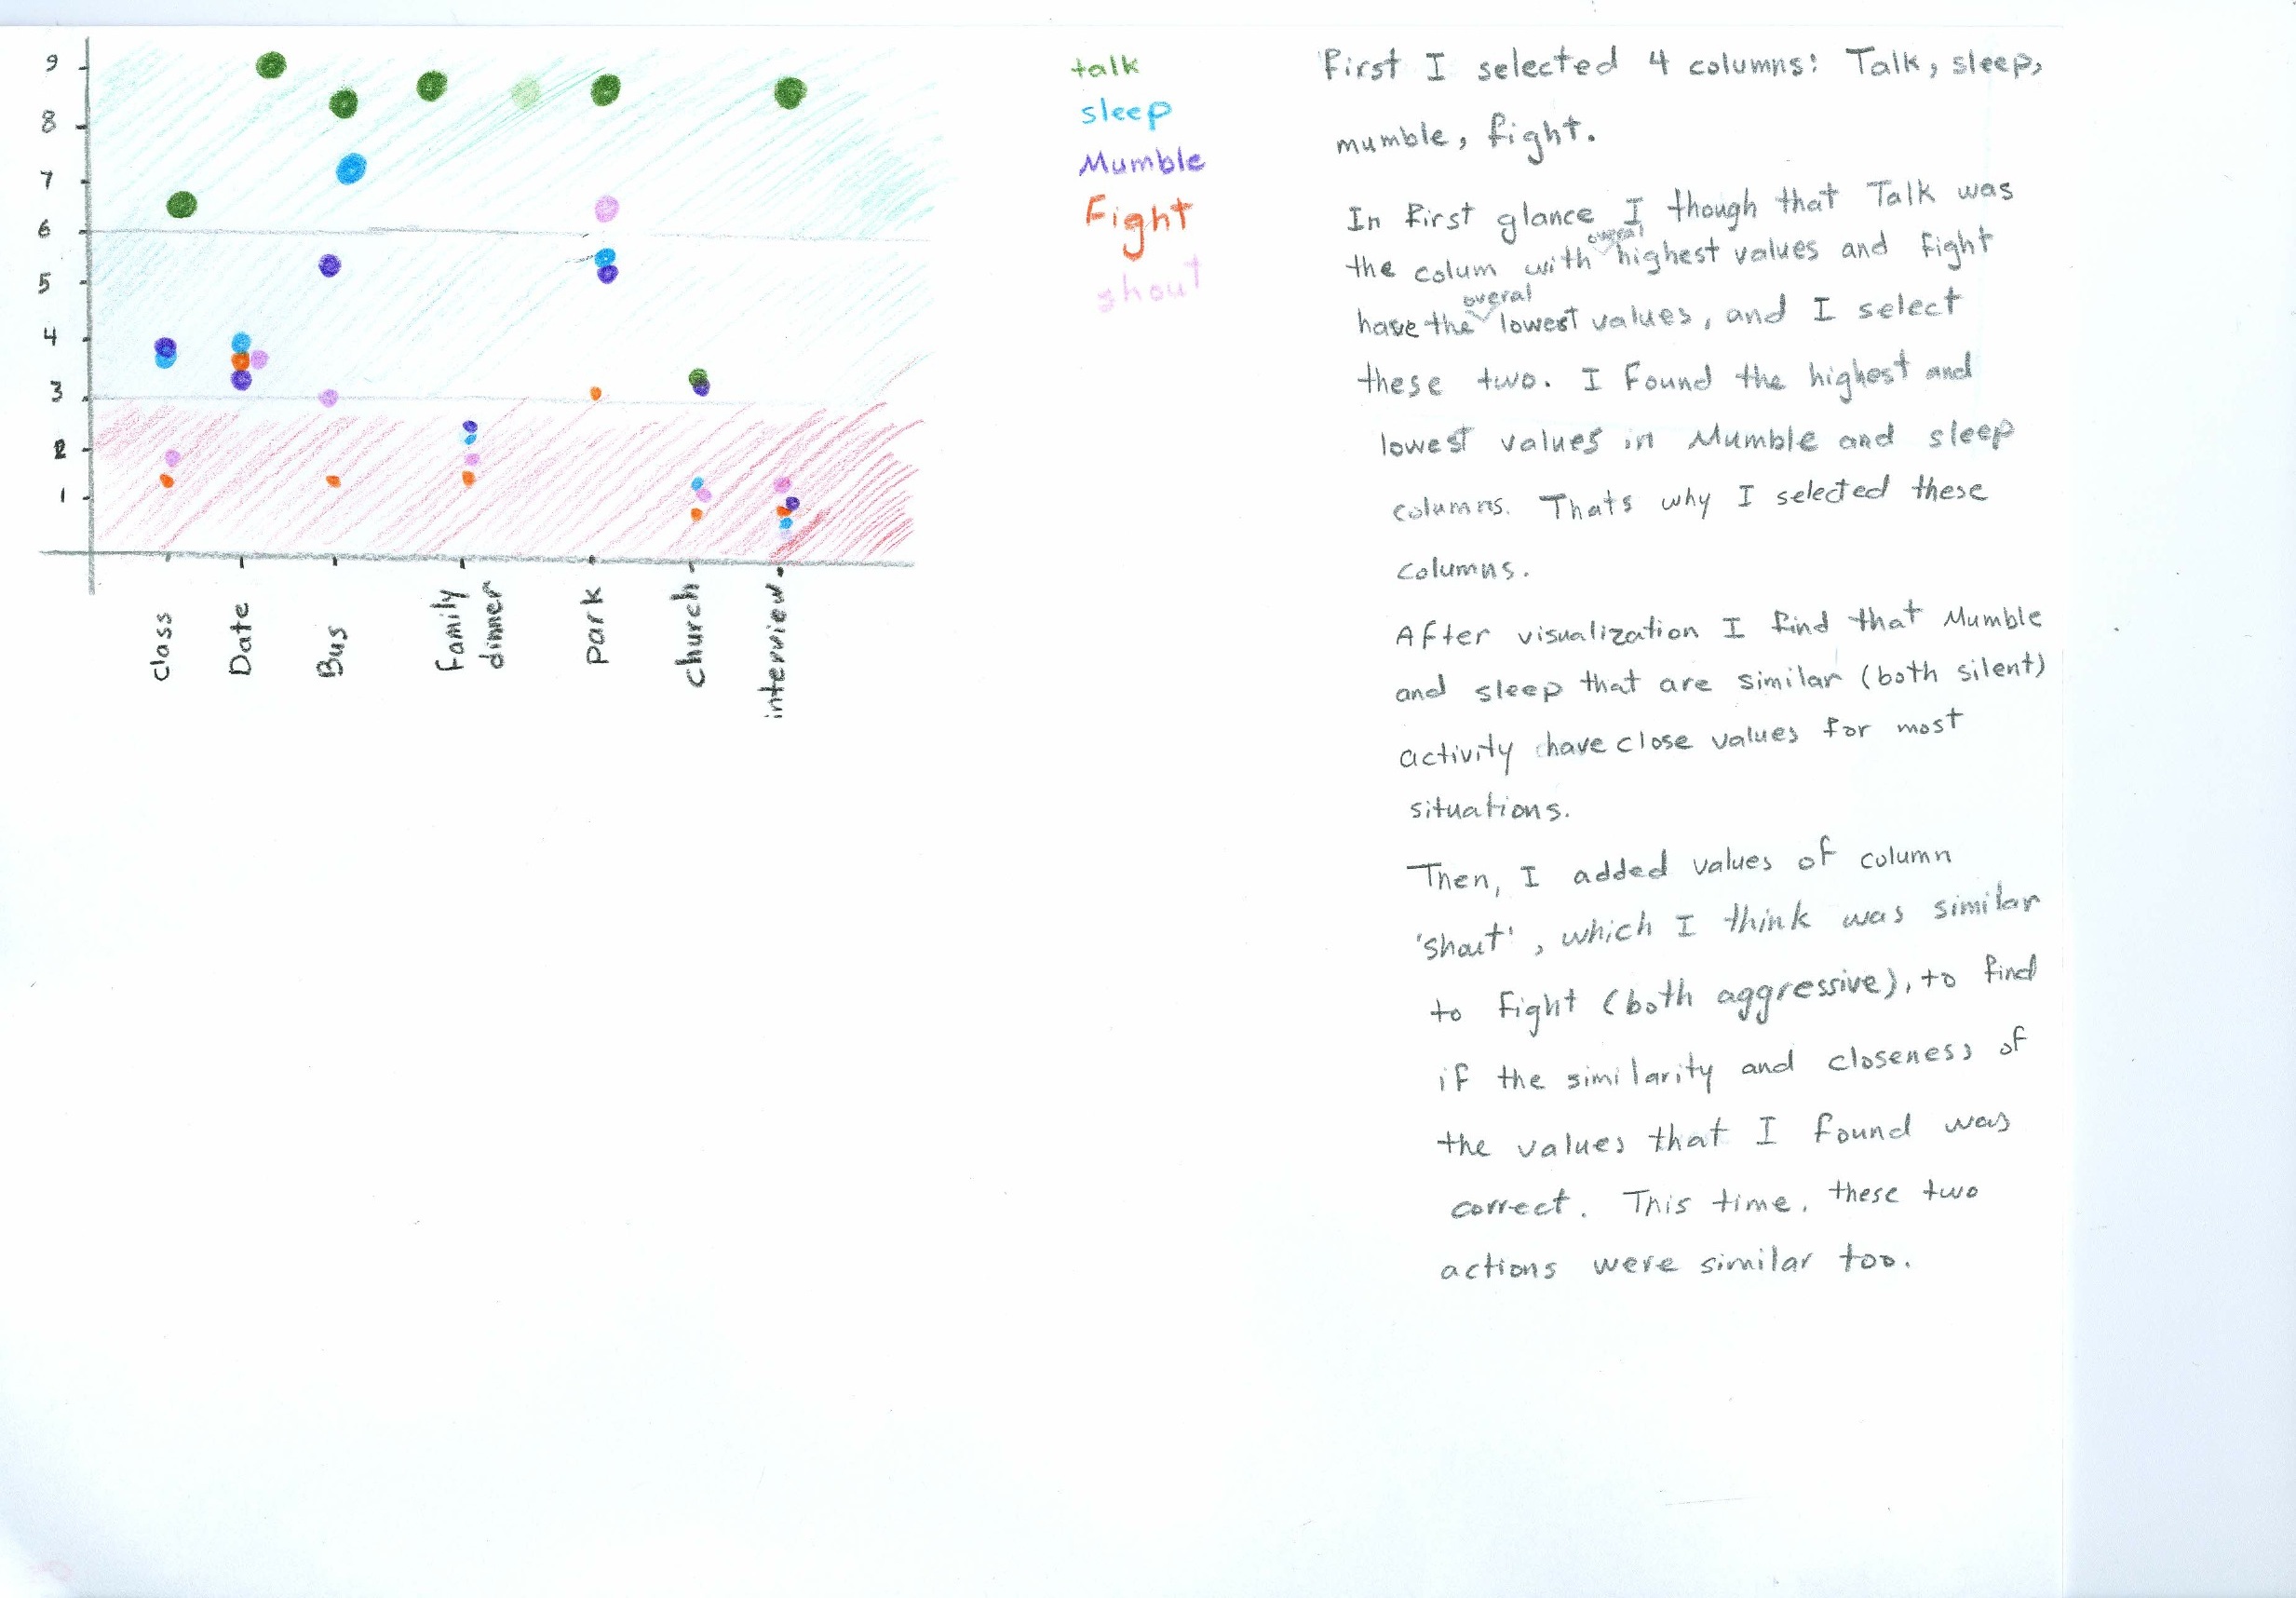 9
8
7
6
5
4
3
2
1
class
Date
Bus
Family
dinner
park
church
interview
talk
sleep
Mumble
Fight
shout
First I selected 4 columns: Talk, sleep,
mumble, fight.
In First glance I though that Talk was
the colum with overal highest values and fight
have the overal lowest values, and I select
these two. I Found the highest and
lowest values in Mumble and sleep
columns. Thats why I selected these
columns.
After visualization I find that Mumble
and sleep that are similar (both silent)
activity have close values for most
situations.
Then, I added values of column
'shout', which I think was similar
to Fight (both aggressive), to find
if the similarity and closeness of
the values that I found was
correct. This time, these two
actions were similar too.